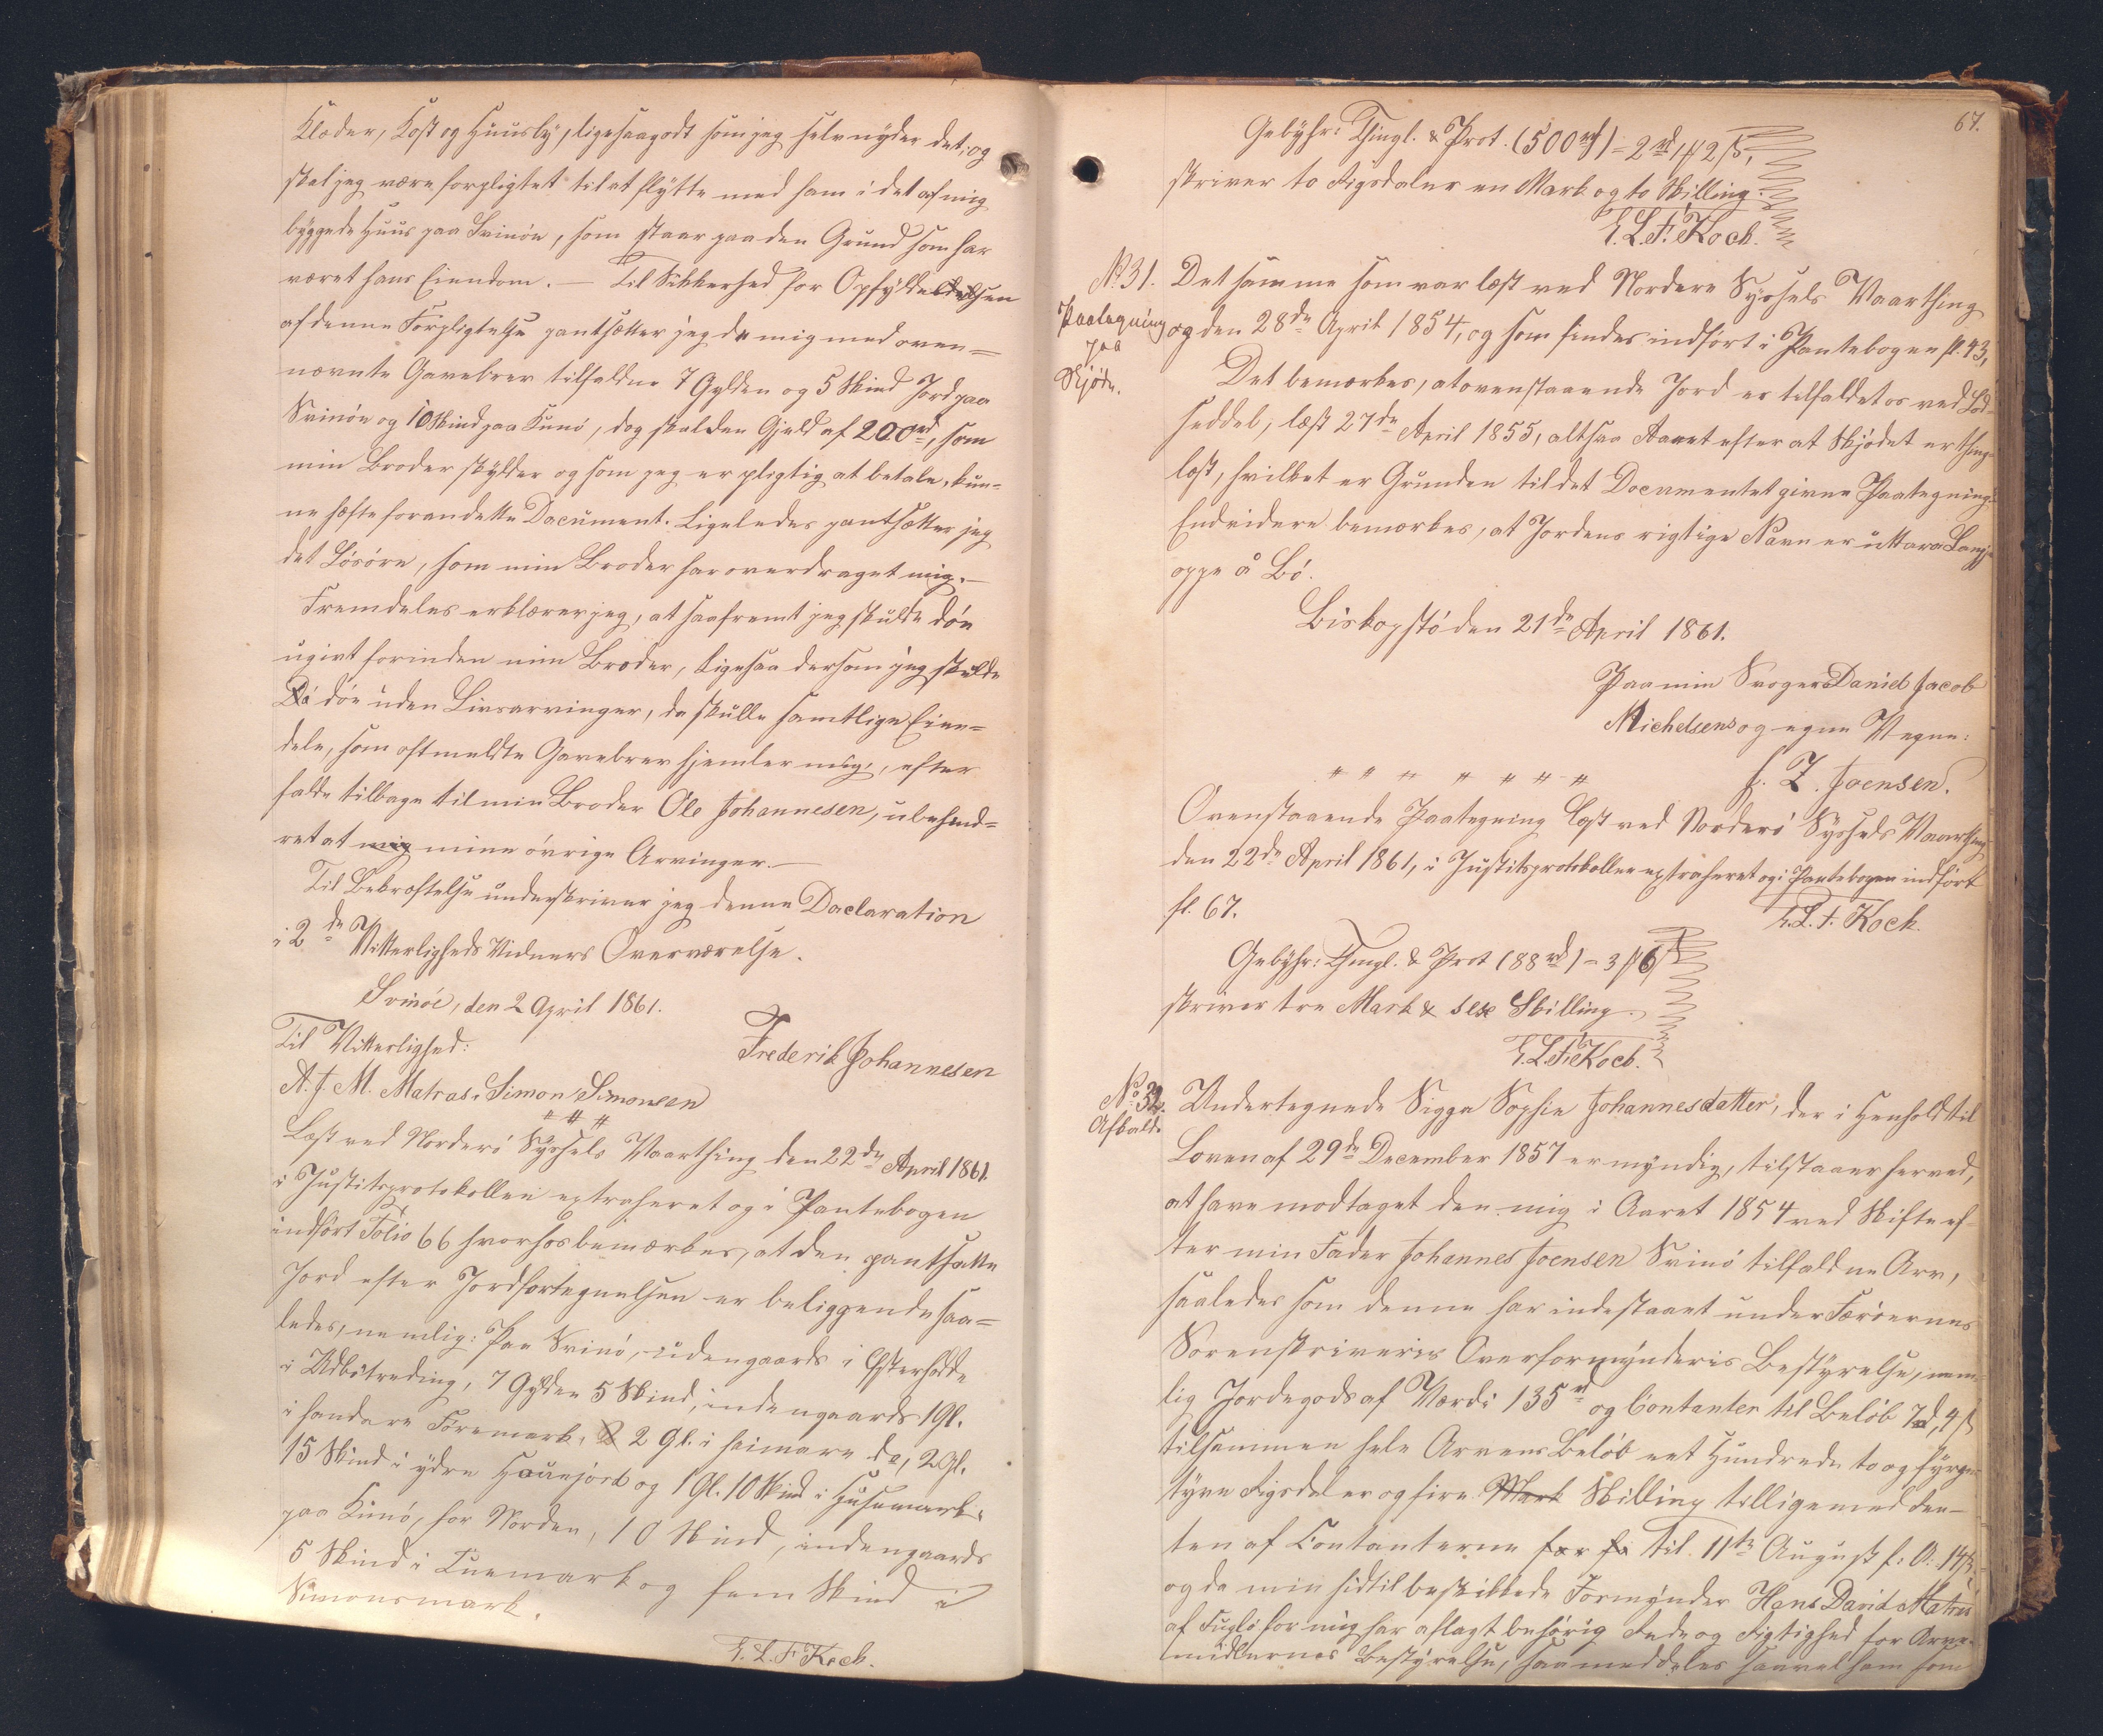 Klæder, Kost og Huusly, ligesaagodt som jeg selv nyder det, og
skal jeg være forpligtet til at flytte med ham i det af mig
byggede Huus paa Svinöe, som staar paa den Grund som har
været hans Eiendom. — Til Sikkerhed for Opfyldelsen
af denne Forpligtelse pantsætter jeg de mig med oven=
nævnte Gavebrev tilfaldne 7 Gylden og 5 Skind Jord paa
Svinöe og 10 Skind paa Kunö, dog skal den Gjeld af 200 rd, som
min Broder skylder og som jeg er pligtig at betale, kun=
ne hæfte foran dette Document. Ligeledes pantsætter jeg
det Lösöre, som min Broder har overdraget mig. —
Fremdeles erklærer jeg, at saafremt jeg skulde döe
ugivt forinden min Broder, ligesaa dersom jeg skulde
döe uden Livsarvinger, da skulle samtlige Eien=
dele, som oftmeldte Gavebrev hjemler mig, efter
falde tilbage til min Broder Ole Johannesen, ubehind=
ret af mig mine övrige Arvinger. —
Til Bekræftelse underskriver jeg denne Declaration
i 2de Vitterligheds Vidners Overværelse.
Svinöe, den 2 April 1861.
Til Vitterlighed:
Frederik Johannesen
A. J. M. Matras. Simon Simonsen
Læst ved Norderö Syssels Vaarthing den 22de April 1861.
i Justitsprotokollen extraheret og i Pantebogen
indfört Folio 66 hvorhos bemærkes, at den pantsatte
Jord efter Jordfortegnelsen er beliggende saa=
ledes, nemlig: Paa Svinö, udengaards i
i Udbötreding, 7 Gylden 5 Skind, indengaards 1 Gl.
i handare Föremark, 2 Gl. i heimare do, 2 Gl.
15 Skind i ydre Hauejord og 1 Gl. 10 Skind i Husemark.
paa Kunö, for Norden, 10 Skind, indengaards
5 Skind i Tuemark og fem Skind i
Simonsmark.
E. L. F. Koch.
67.
Gebyhr: Thingl. & Prot. (500 rd) = 2 rd 1 # 2 ß,
skriver to Rigsdaler en Mark og to Skilling.
E. L. F. Koch.
No 31.
Paategning
paa
Skjöde.
Det samme som var læst ved Nordere Syssels Vaarthing
og den 28de April 1854, og som findes indfört i Pantebogen fl. 43,
Det bemærkes, at ovenstaaende Jord er tilfaldet os ved Lod=
seddel, læst 27de April 1855, altsaa Aaret efter at Skjödet er thing=
læst, hvilket er Grunden til det Documentet givne Paategning.
Endvidere bemærkes, at Jordens rigtige Navn er uttara Langj
oppe å Bö.
Biskopstö den 21de April 1861.
Paa min Svogers Daniel Jacob
Michelsens og egne Vegne:
J. Z. Joensen.
Ovenstaaende Paategning læst ved Norderö Syssels Vaarthing
den 22de April 1861, i Justitsprotokollen extraheret og i Pantebogen indfört
fl. 67.
E. L. F. Koch.
Gebyhr: Thingl. & Prot (88 rd) = 3 # 6 ß
skriver tre Mark & sex Skilling.
E. L. F. Koch.
No 32.
Afkald.
Undertegnede Sigga Sophie Johannesdatter, der i Henhold til
Loven af 29de December 1857 er myndig, tilstaaer herved,
at have modtaget den mig i Aaret 1854 ved Skifte ef=
ter min Fader Johannes Joensen Svinö tilfaldne Arv,
saaledes som denne har indestaaet under Færöernes
Sorenskriveris Overformynderis Bestyrelse, nem=
lig Jordegods af Værdi 135 rd og Contanter til Belöb 7 rd, 4 ß
tilsammen hele Arvens Belöb eet Hundrede to og fyrge=
tyve Rigsdaler og fire Mark Skilling tilligemed Ren=
ten af Contanterne for fr til 11te August f. A.
og da min hidtil beskikkede Formynder Hans David Matras
af Fuglö for mig har aflagt behörig Rede og Rigtighed for Arve=
midlernes Bestyrelse, saa meddeles saavel ham som